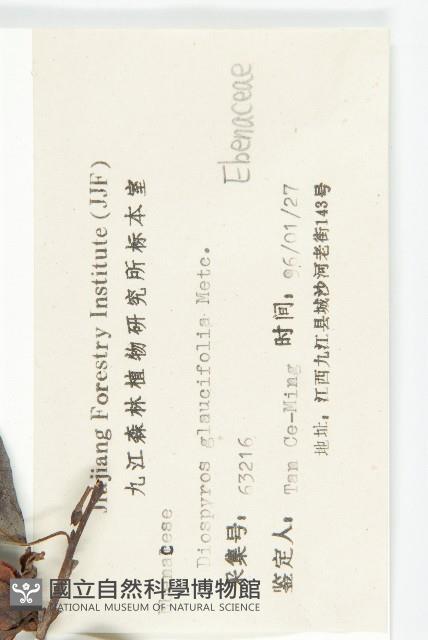 Jiujiang Forestry Institute (JJF)
九江森林植物研究所标本室
Ebenaceae
Diospyros glaucifolia Metc.
采集号: 63216
鉴定人: Tan Ce-Ming 时间: 96/01/27
地址: 江西九江县城沙河老街143号
國立自然科學博物館
NATIONAL MUSEUM OF NATURAL SCIENCE